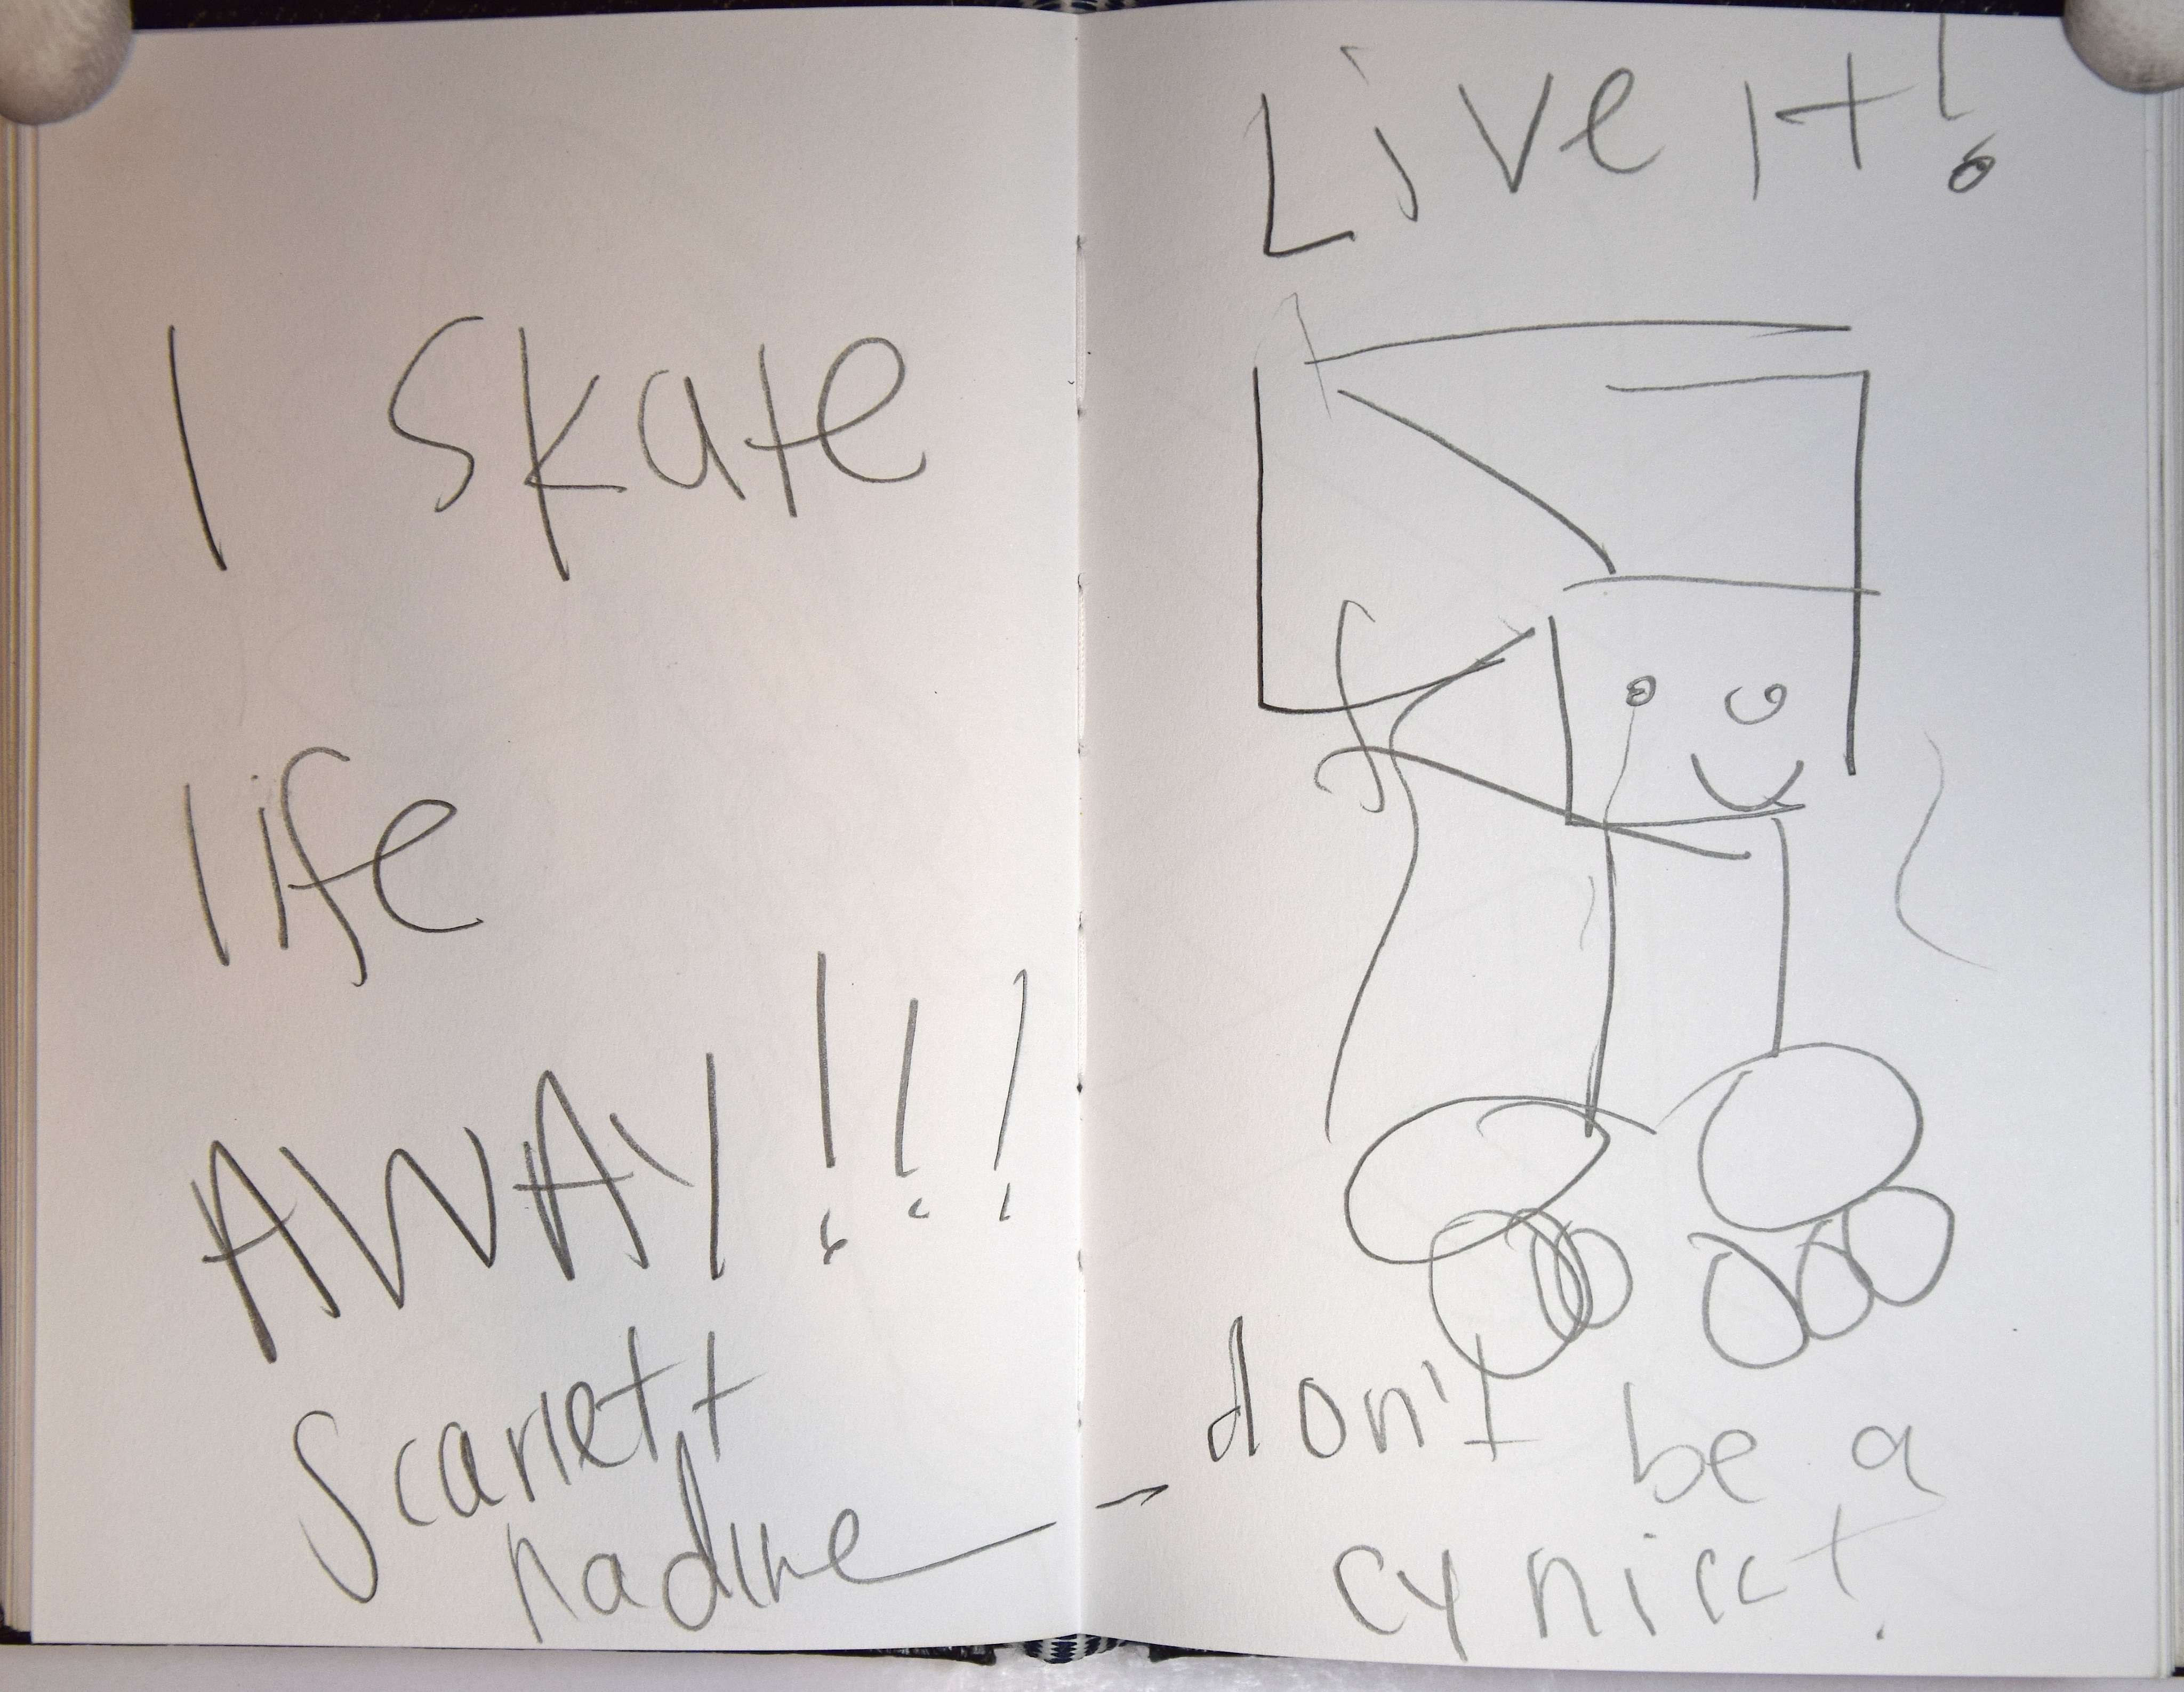 I skate
life
AWAY!!!
Scarlett
nadine
Live it!
don't be a